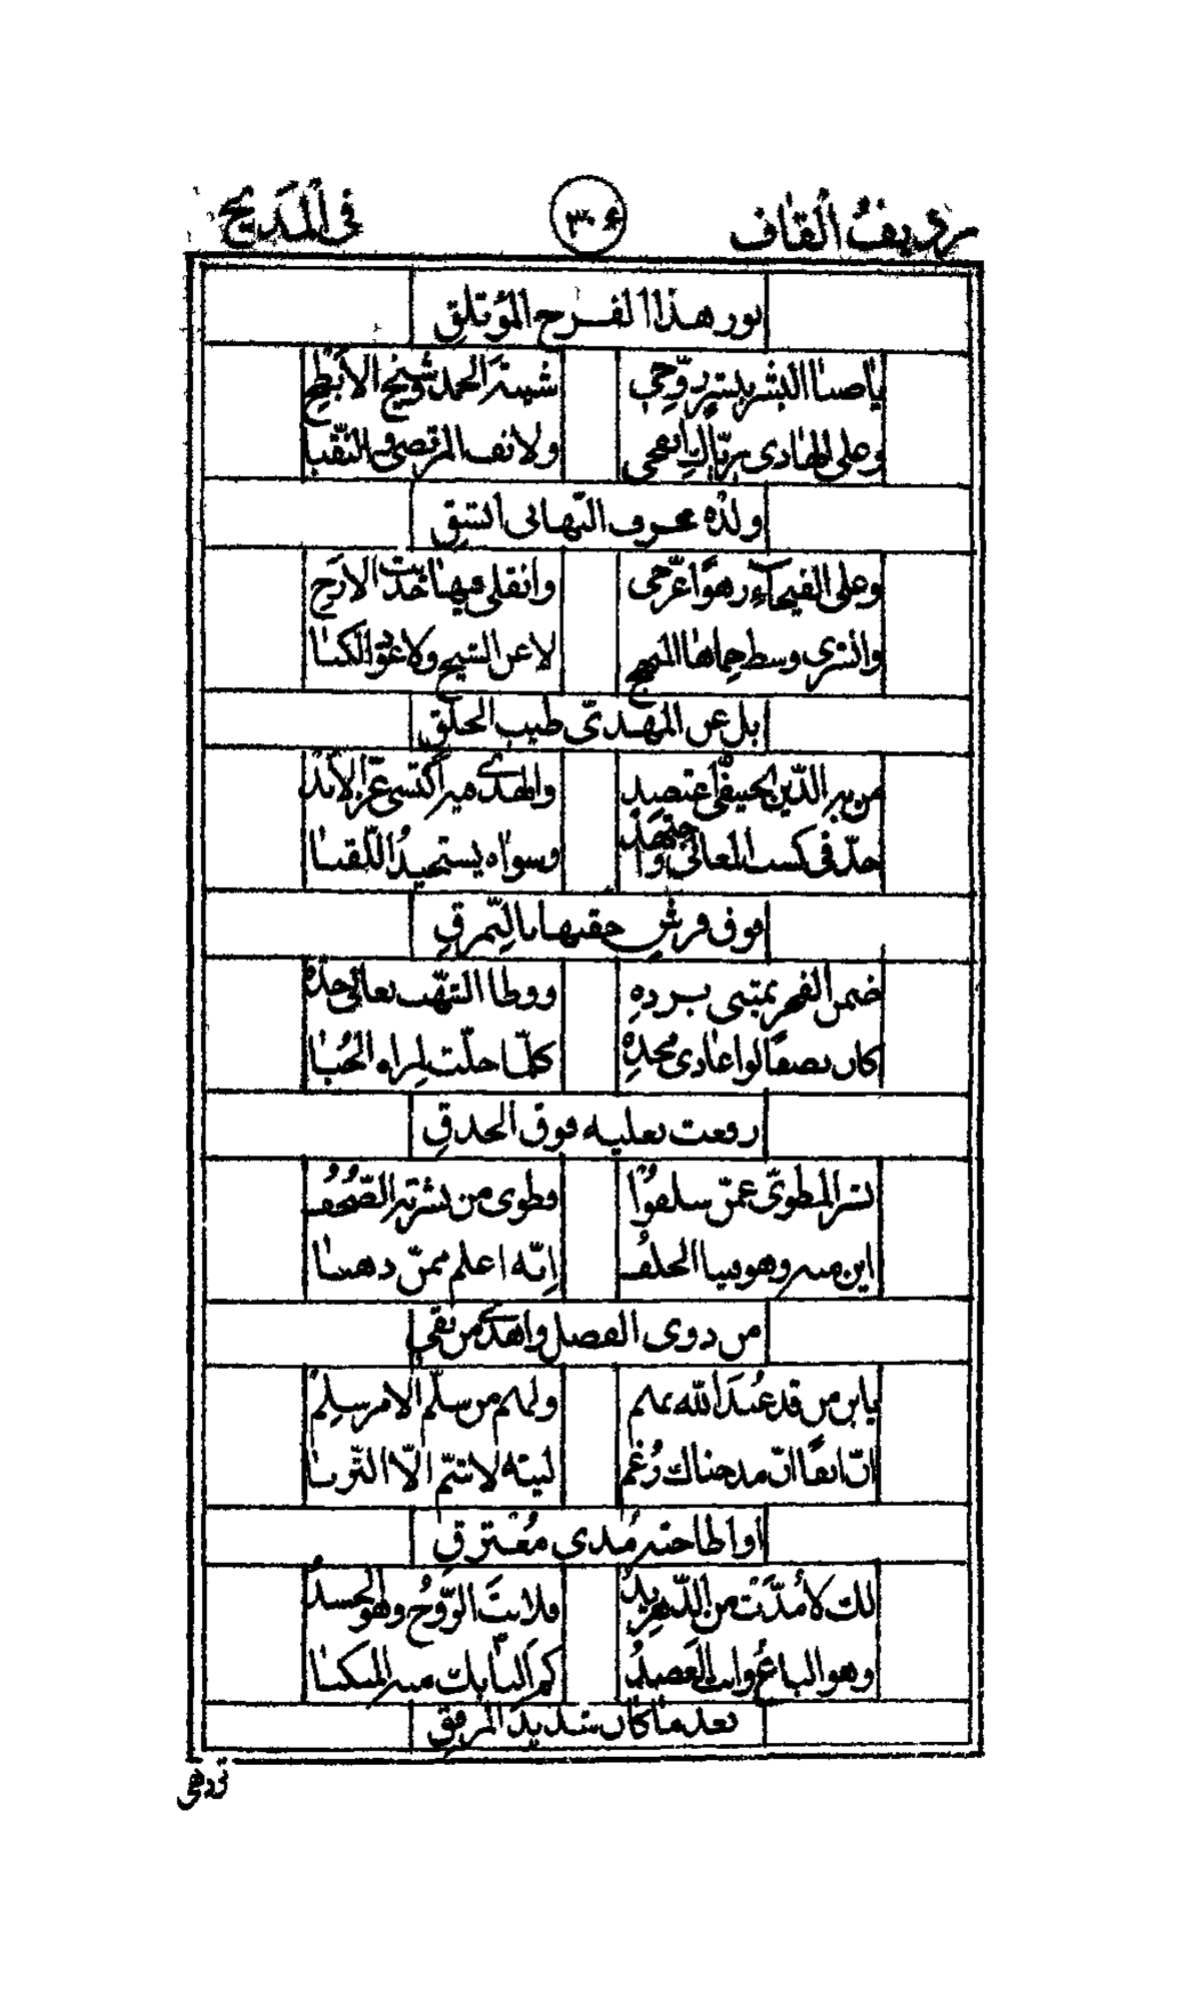 رديف القاف ٣٠٤ في المديح
نور هذا الفرح المؤتلق
يا صبا البشر ببشر روّحي شيبة الحمد وشيخ الأبطح
وعلى الهادي بريّاك انفحي ولانف المرتضى والنقبا
ولده عرف التهاني انشق
وعلى الفيحاء رهوًا عرّجي وانقلي فيها حديث الارج
وانشري وسط حماها المبهج لا عن الشيح ولا عن الكبا
بل عن المهديّ طيب الخلق
من ببرد الدّين الحنيفي اعتضد والهدى فيه اكتسى عزّ الأبد
جدّ في كسب المعالي واجتهد وسواه يستجيد اللّقبا
فوق فرش حفّها بالنّمرق
ضمن الفخر بمثنى برده ووطا الشّهب بعالي جدّه
كان نصفًا لو اعادي مجده كلّما حلّت لمرآه الحبا
رفعت نعليه فوق الحدق
نشر المطويّ عمّن سلفوا وطوى من نشرته الصّحف
اين منه وهو فينا الخلف إنّه اعلم ممّن ذهبا
من ذوي الفضل واهدى من بقي
يا بن من قد عُبد الله بهم ولهم من سلّم الامر سلم
انّ انفًا انّ مدحناك رُغم ليته لا شمّ الّا التّربا
او اطاحته مُدى مفترق
لك لا مُدّت من الدّهر يد فلانت الرّوح وهو الجسد
وهو الباع وانت العضد كم النا بك منه المنكبا
بعد ما كان شديد المرفق
تزدهي